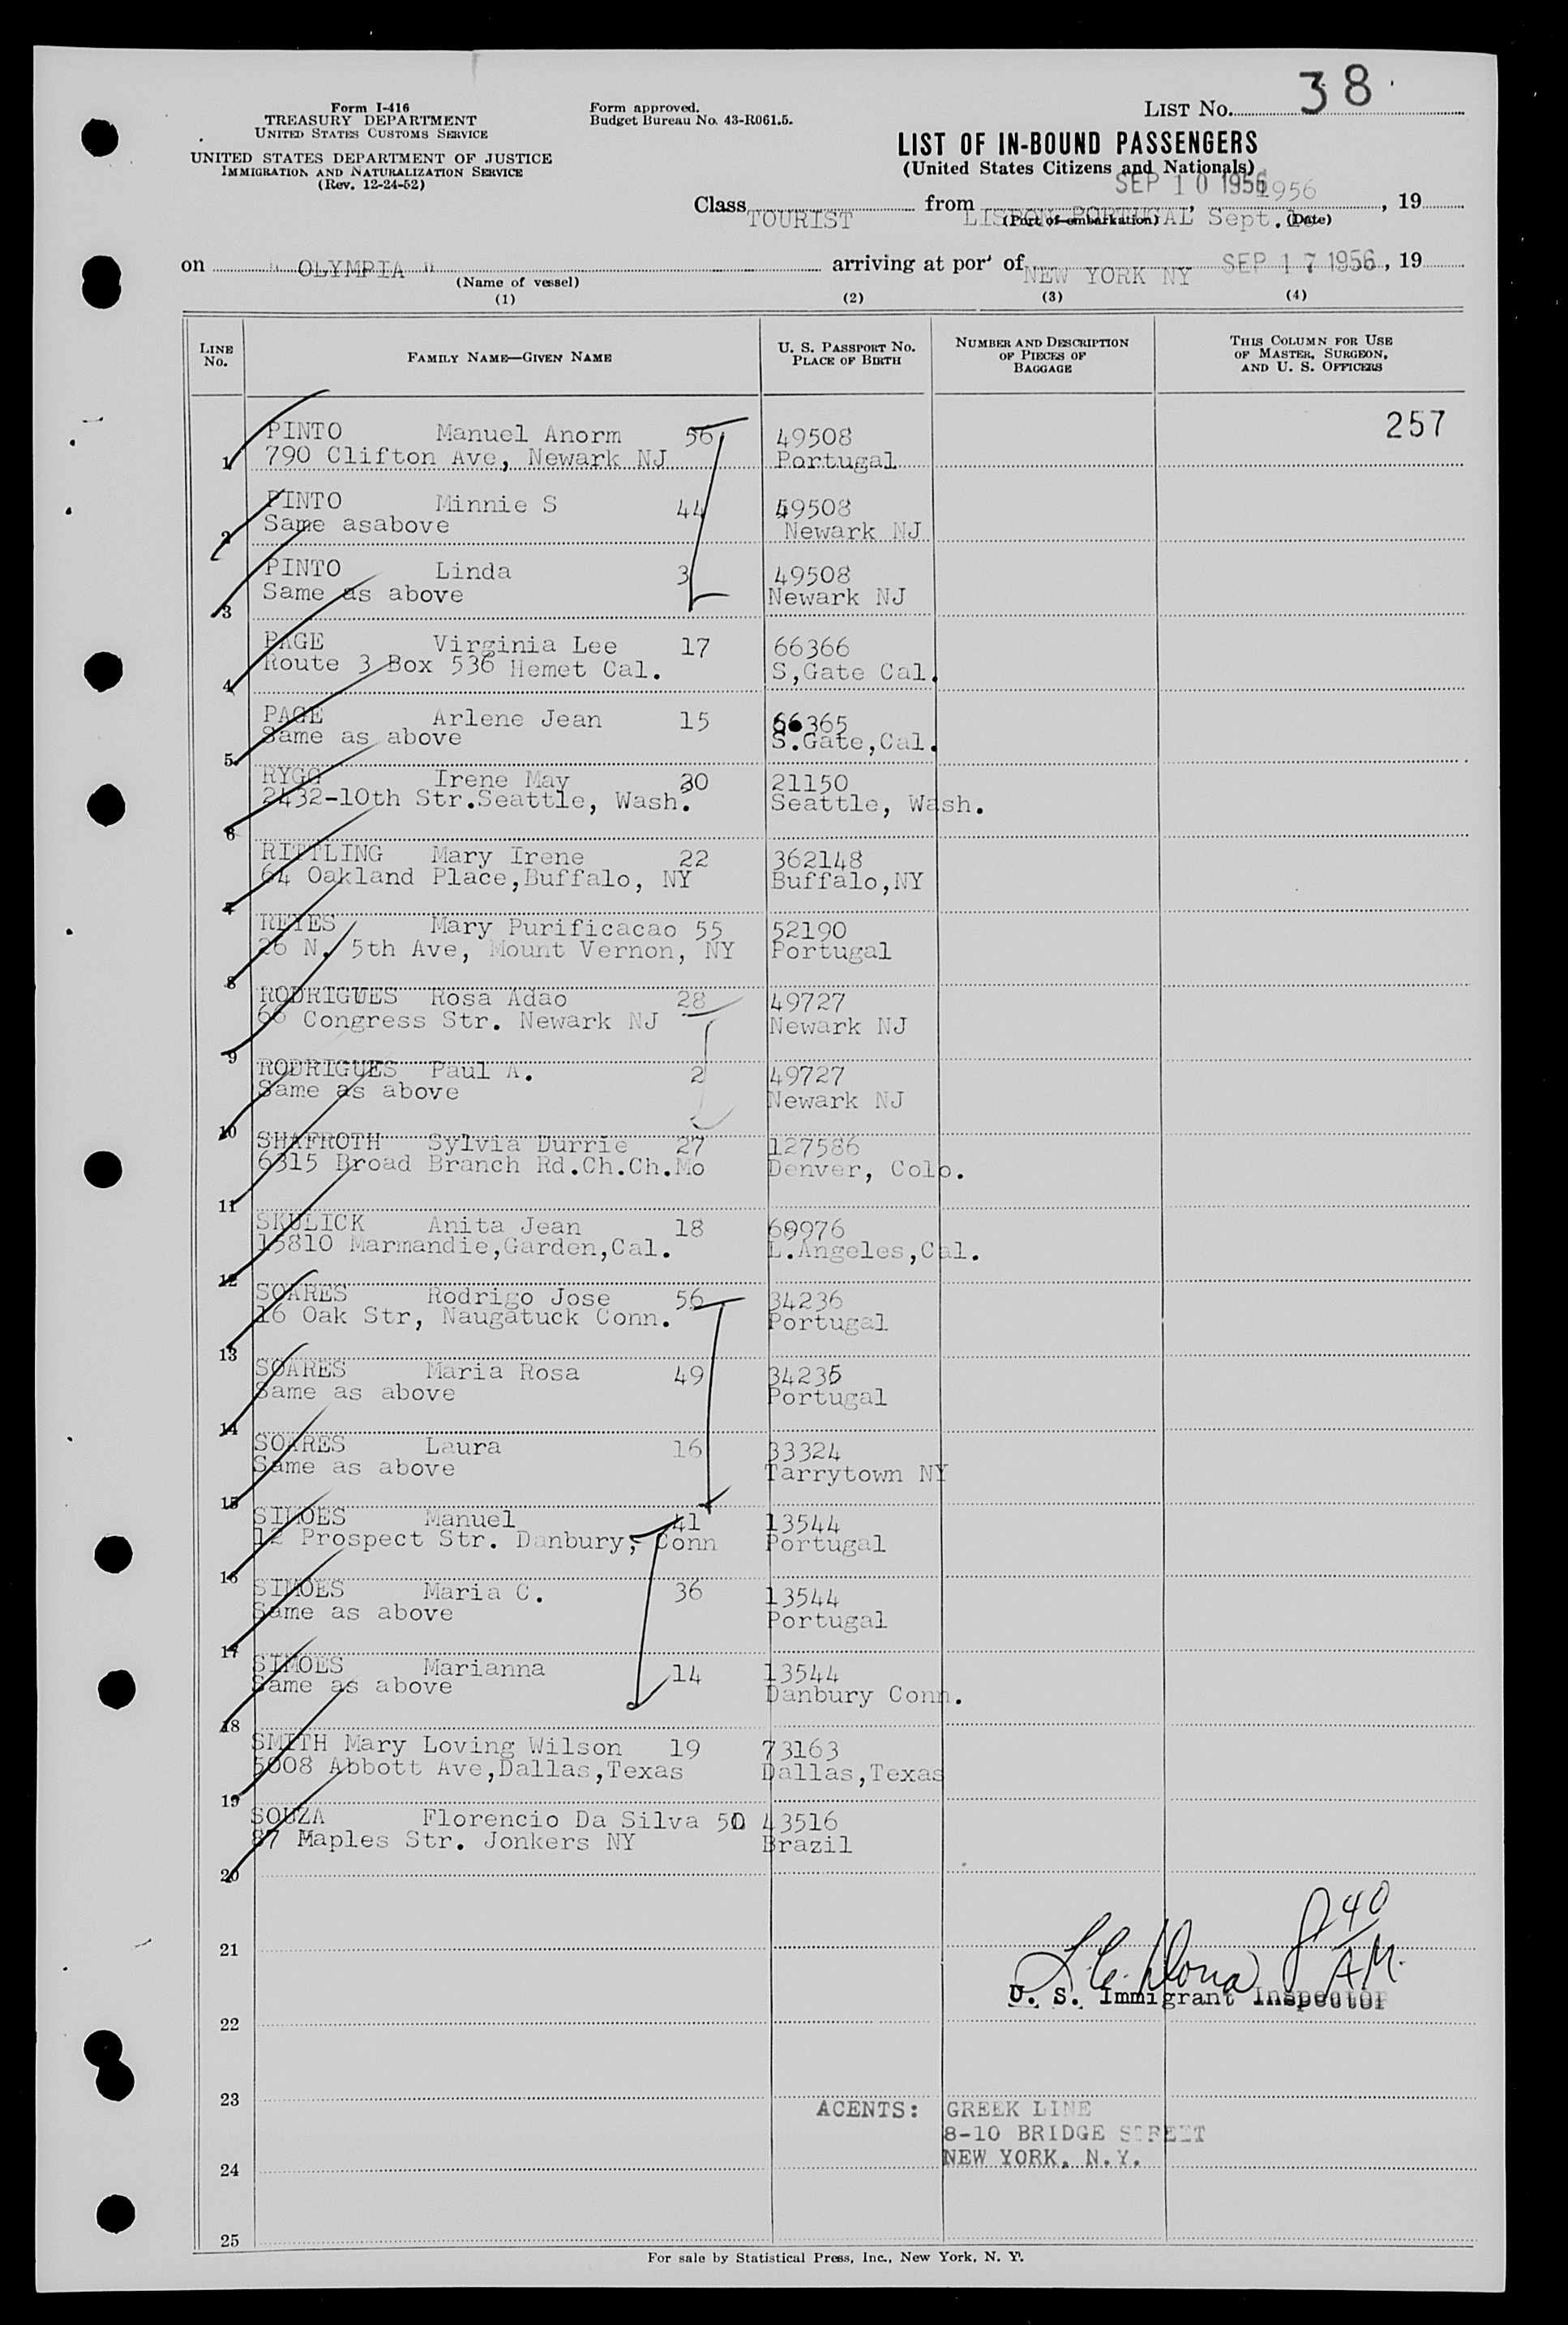 38
Form I-416
TREASURY DEPARTMENT
UNITED STATES CUSTOMS SERVICE
UNITED STATES DEPARTMENT OF JUSTICE
IMMIGRATION AND NATURALIZATION SERVICE
(Rev. 12-24-52)
Form approved.
Budget Bureau No. 43-R061.5.
LIST No.
LIST OF IN-BOUND PASSENGERS
(United States Citizens and Nationals)
SEP 10 1956 1956
Class TOURIST from LISBON PORTUGAL Sept. , 19
(Port of embarkation) (Date)
on " OLYMPIA " arriving at port of NEW YORK NY SEP 17 1956, 19
(Name of vessel)
(1) (2) (3) (4)
LINE No. FAMILY NAME—GIVEN NAME U. S. PASSPORT No. PLACE OF BIRTH NUMBER AND DESCRIPTION OF PIECES OF BAGGAGE THIS COLUMN FOR USE OF MASTER, SURGEON, AND U. S. OFFICERS
257
PINTO Manuel Anorm 56 49508
1 790 Clifton Ave, Newark NJ Portugal
PINTO Minnie S 44 49508
2 Same asabove Newark NJ
PINTO Linda 3 49508
3 Same as above Newark NJ
PAGE Virginia Lee 17 66366
4 Route 3 Box 536 Hemet Cal. S,Gate Cal.
PAGE Arlene Jean 15 66365
5 Same as above S.Gate,Cal.
RYGG Irene May 30 21150
6 2432-10th Str.Seattle, Wash. Seattle, Wash.
RITTLING Mary Irene 22 362148
7 64 Oakland Place,Buffalo, NY Buffalo,NY
REYES Mary Purificacao 55 52190
8 26 N. 5th Ave, Mount Vernon, NY Portugal
RODRIGUES Rosa Adao 28 49727
9 66 Congress Str. Newark NJ Newark NJ
RODRIGUES Paul A. 2 49727
10 Same as above Newark NJ
SHAFROTH Sylvia Durrie 27 127586
11 6315 Broad Branch Rd.Ch.Ch.Mo Denver, Colo.
SKULICK Anita Jean 18 60976
12 15810 Marmandie,Garden,Cal. L.Angeles,Cal.
SOARES Rodrigo Jose 56 34236
13 16 Oak Str, Naugatuck Conn. Portugal
SOARES Maria Rosa 49 34235
14 Same as above Portugal
SOARES Laura 16 33324
15 Same as above Tarrytown NY
SIMOES Manuel 41 13544
16 12 Prospect Str. Danbury, Conn Portugal
SIMOES Maria C. 36 13544
17 Same as above Portugal
SIMOES Marianna 14 13544
18 Same as above Danbury Conn.
SMITH Mary Loving Wilson 19 73163
19 5008 Abbott Ave,Dallas,Texas Dallas,Texas
SOUZA Florencio Da Silva 50 43516
20 87 Maples Str. Jonkers NY Brazil
21
40
AM.
U. S. Immigrant Inspector
22
23
AGENTS: GREEK LINE
8-10 BRIDGE STREET
24 NEW YORK, N.Y.
25
For sale by Statistical Press, Inc., New York, N. Y.